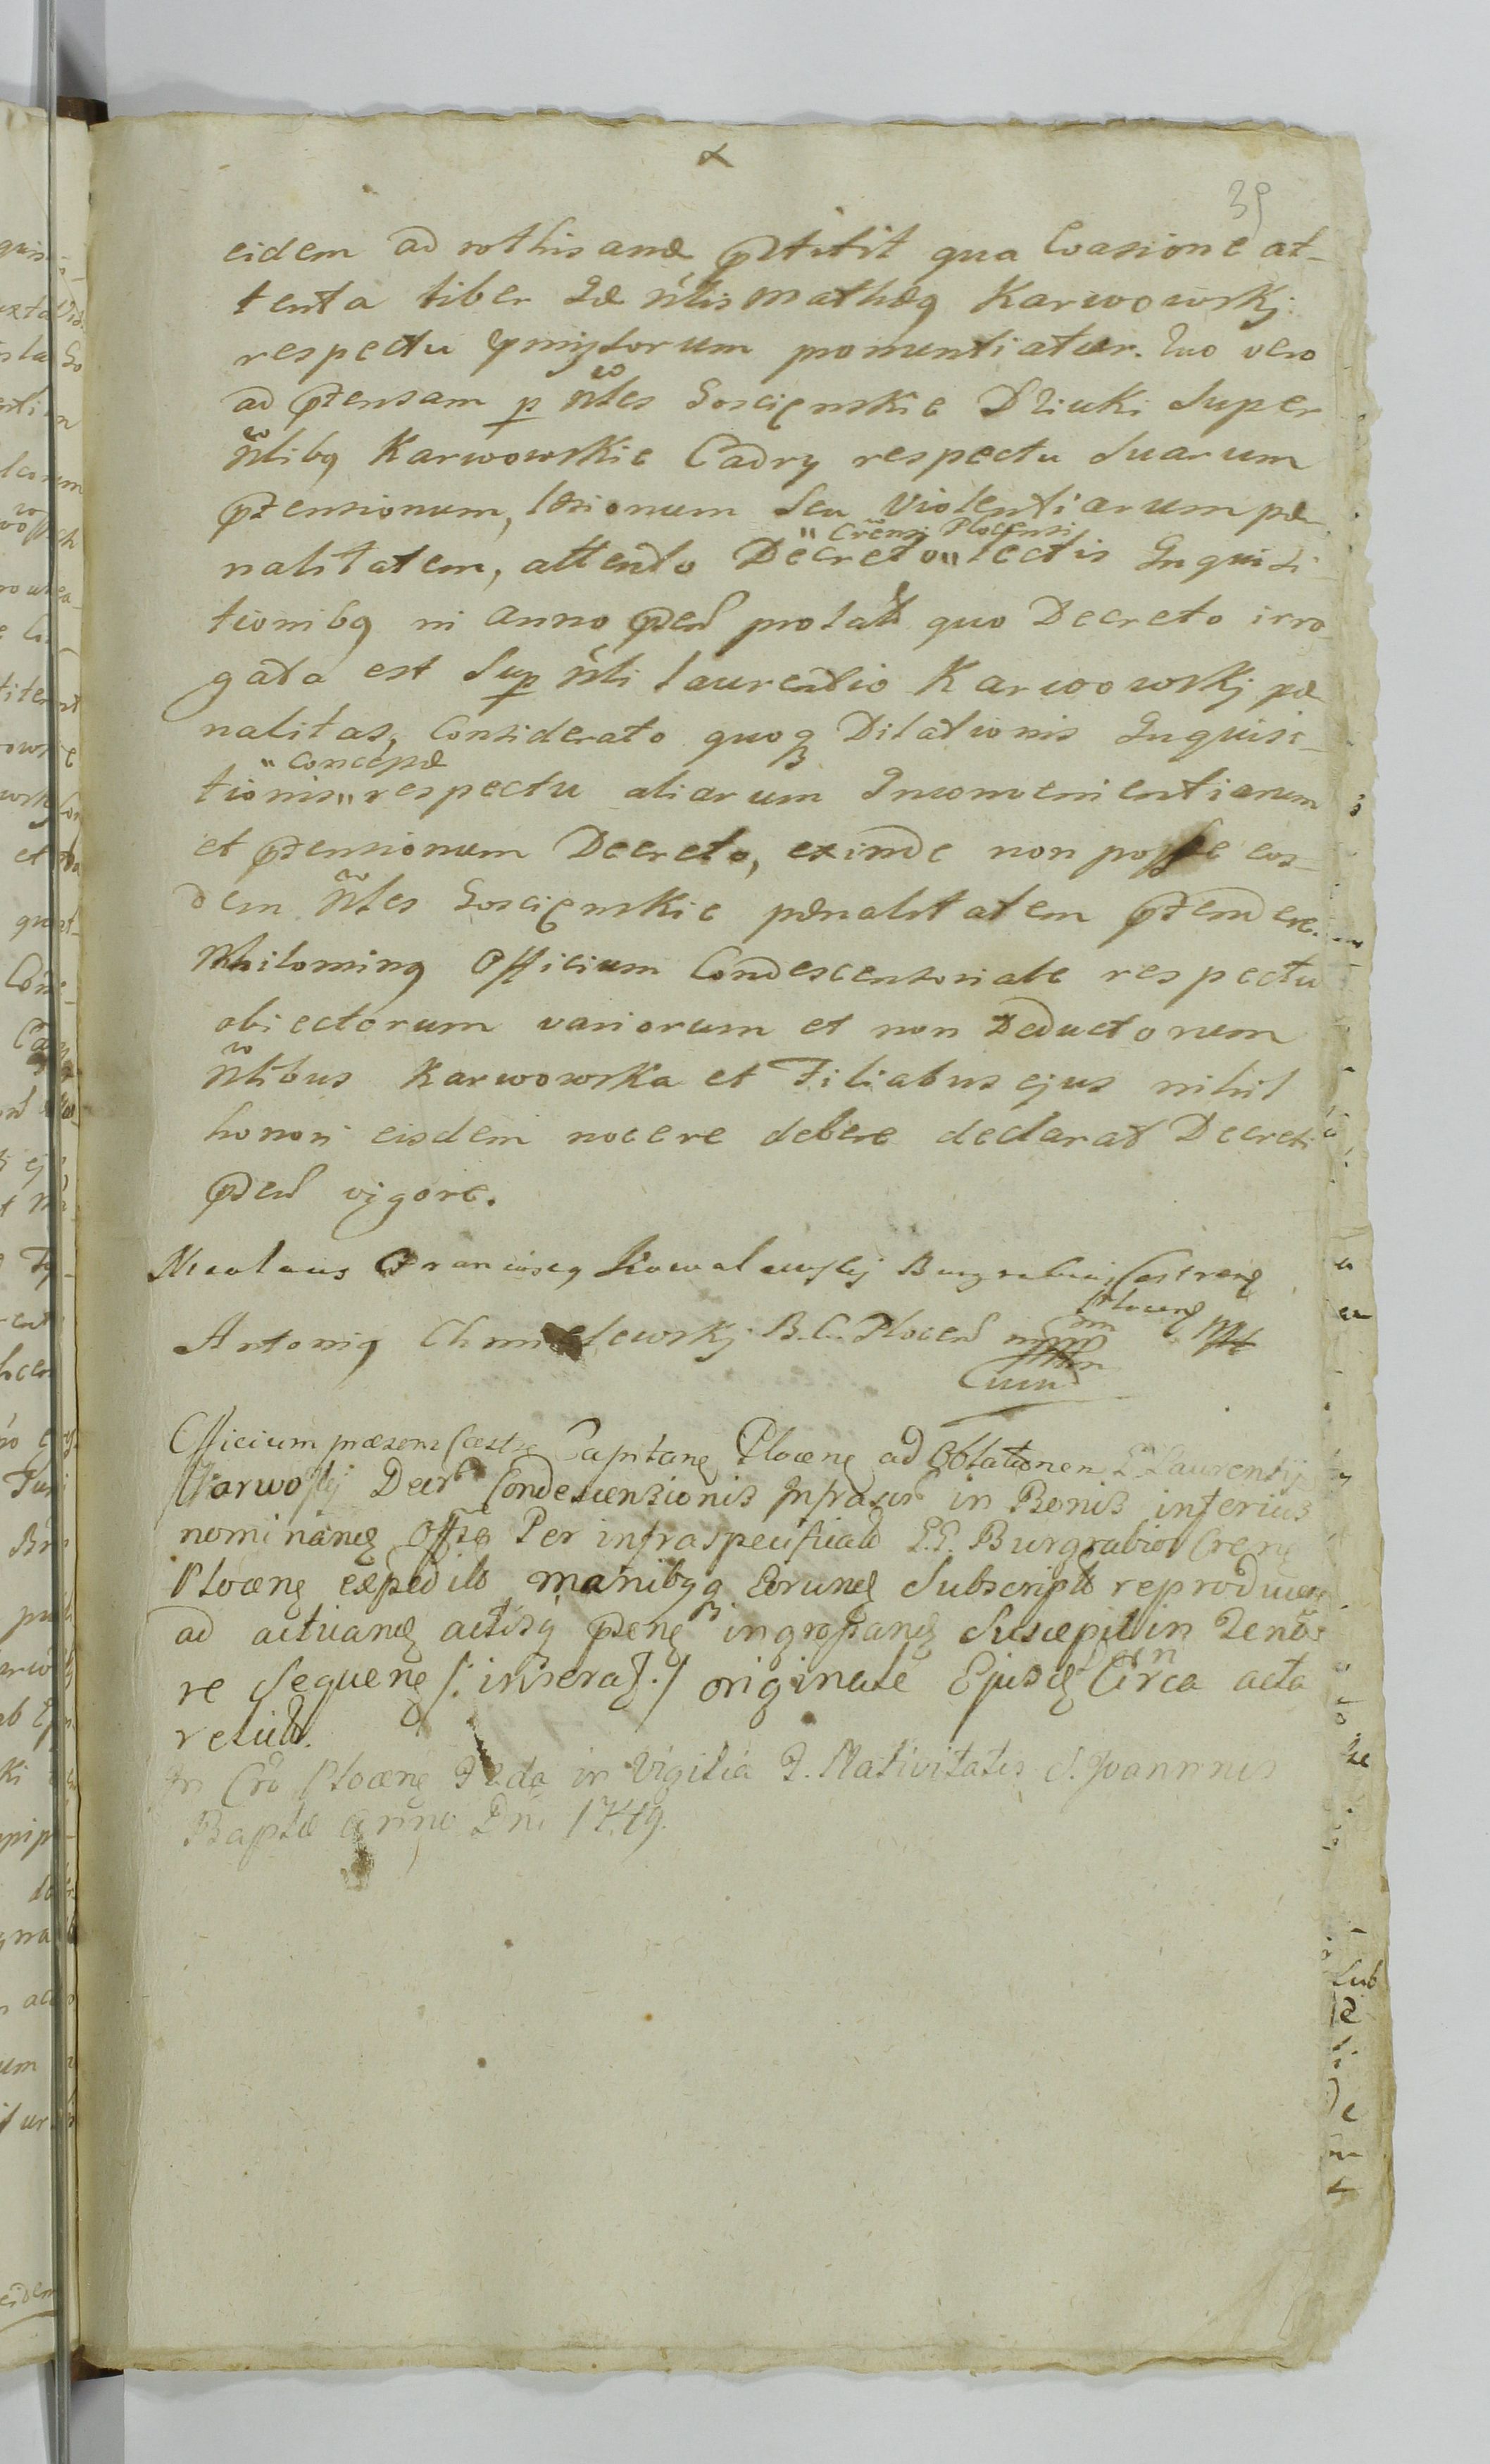 39
eidem ad rothisand p̃stitit qua Evasione at-
tenta liber Idē Nlis Mathęq Karwowskj
respectu pmissorum pronuntiatur. Quo vero
ad p̃tensam p Nles Goscięnskie Dziuki super
Nlibq Karwowskie Cadry respectu suarum
p̃tensionum, læsionum seu violentiarum pæ-
nalitatem, attento Decreto "Cren̄si Plocensi" lectis Inquisi-
tionibq in anno p̃sen̄ prolat̄ quo Decreto irro-
gata est Sup Nli Laurentio Karwowskj pæ-
nalitas, Considerato quoq Dilationis Inquisi-
tionis "Conceptæ" respectu aliarum Inconvenientiarum
et p̃tensionum Decreto, exinde non posse eos-
dem Nles Goscięnskie pænalitatem p̃tendere.
Nihilominq Officium Condescensoriale respectu
obiectorum variorum et non Deductorum
Nlibus Karwowska et Filiabus ejus nihil
honori eisdem nocere debere declarat Decreti
p̃sen̄ vigore.
Nicolaus Franciscq Kowalewskj Burgrabius Castren̄
Plocen̄ mp
Antoniq Chmielewskj B.C. Plocen̄ mp
Officium præsens Castr̄ Capitan̄ Plocen̄ ad Oblationem G. Laurentij
Karwoskj Decr̄ Condescensionis Infrascr̄ in Bonis inferius
nominan̄ Offō Per infraspecificat̄ G.G. Burgrabios Cren̄
Plocen̄ expedit̄ manibqq Eorund̄ Subscript̄ reproducen̄
ad activand̄ actisq p̃sen̄ ingrossand̄ Suscepit in Teno-
re Sequen̄ /: inserat̄ :/ originale Ejusd̄ Circa acta
retult̄.
In Cr̄o Plocen̄ Fda in Vigilia F. Nativitatis S. Joannnis
Baptæ Anno Dni 1749.